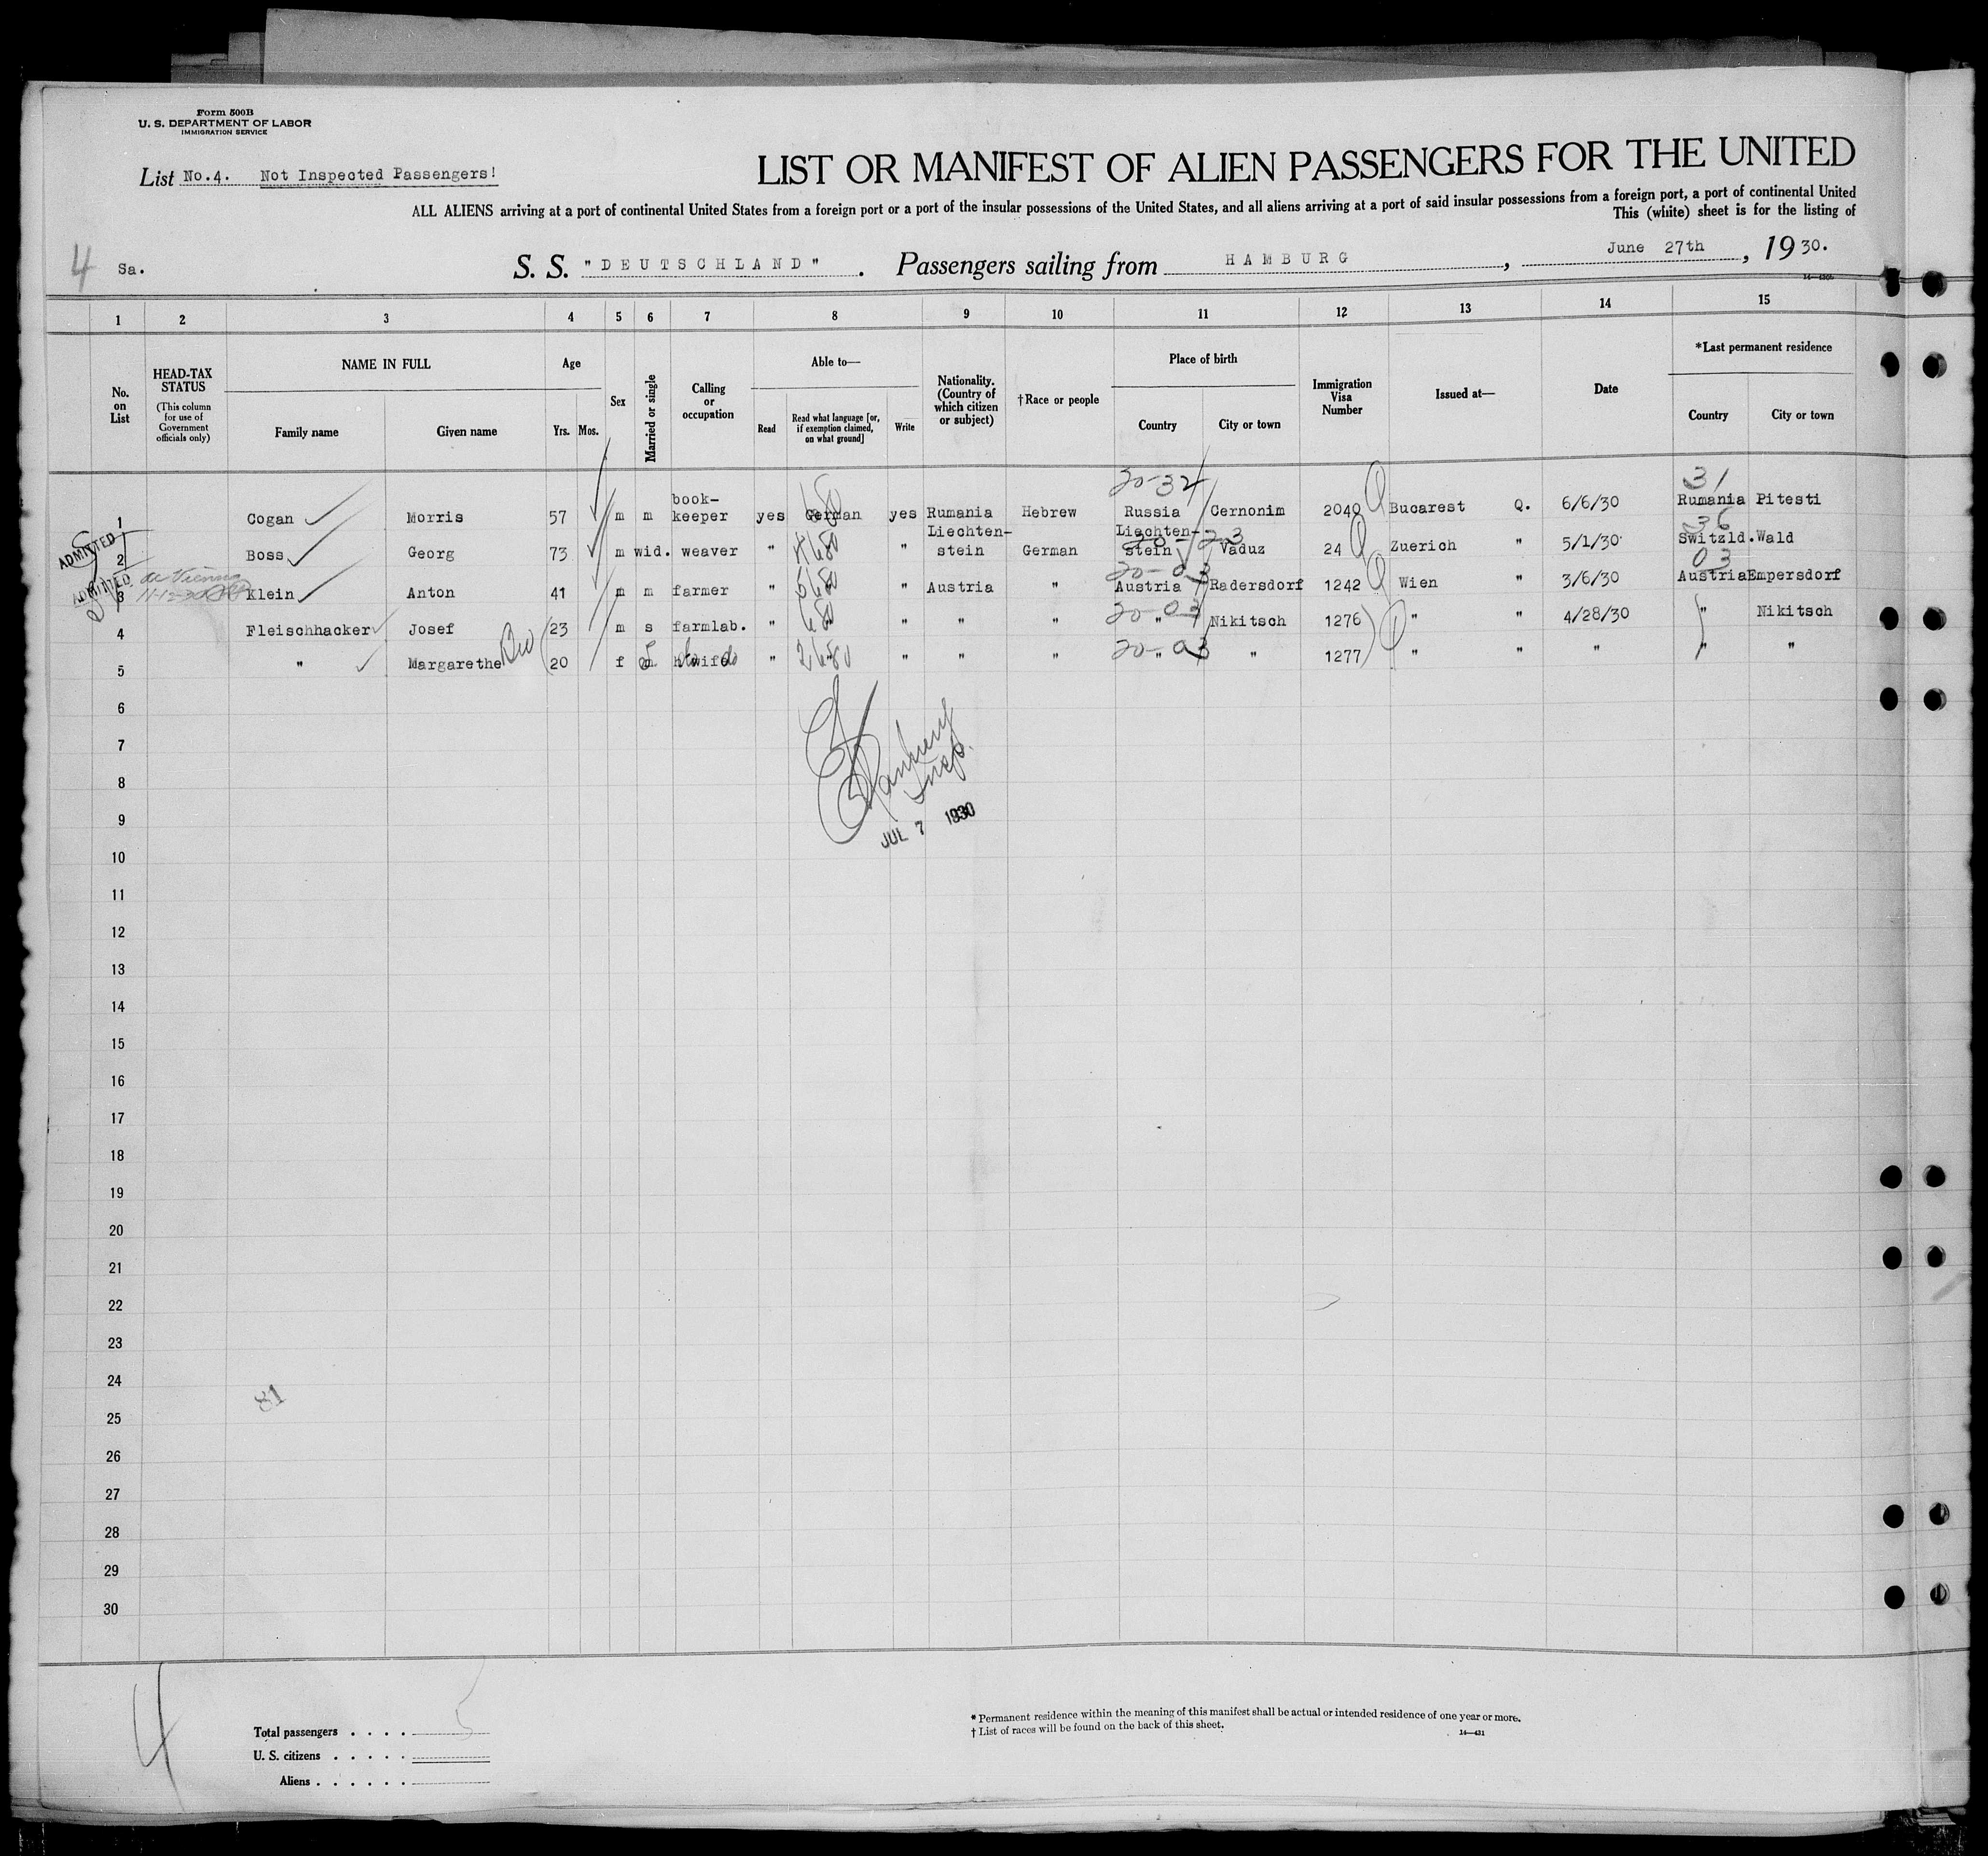 Form 500B
U. S. DEPARTMENT OF LABOR
IMMIGRATION SERVICE
List No.4. Not Inspected Passengers!
LIST OR MANIFEST OF ALIEN PASSENGERS FOR THE UNITED
ALL ALIENS arriving at a port of continental United States from a foreign port or a port of the insular possessions of the United States, and all aliens arriving at a port of said insular possessions from a foreign port, a port of continental United
This (white) sheet is for the listing of
4 Sa. S. S. "DEUTSCHLAND". Passengers sailing from HAMBURG, June 27th, 1930.
1 2 3 4 5 6 7 8 9 10 11 12 13 14 15
No. on List
HEAD-TAX STATUS (This column for use of Government officials only)
NAME IN FULL Family name Given name
Age Yrs. Mos.
Sex
Married or single
Calling or occupation
Able to— Read Read what language [or, if exemption claimed, on what ground] Write
Nationality. (Country of which citizen or subject)
†Race or people
Place of birth Country City or town
Immigration Visa Number
Issued at—
Date
*Last permanent residence Country City or town
20-32 31
1 Cogan Morris 57 m m book-keeper yes German yes Rumania Hebrew Russia Cernonim 2040 Bucarest Q. 6/6/30 Rumania Pitesti
ADMITTED 20-23 36
2 Boss Georg 73 m wid. weaver " " Liechten-stein German Liechten-stein Vaduz 24 Zuerich " 5/1/30 Switzld. Wald
ADMITTED Vienna 20-03 03
3 Klein Anton 41 m m farmer " " Austria " Austria Radersdorf 1242 Wien " 3/6/30 Austria Empersdorf
20-03
4 Fleischhacker Josef 23 m s farmlab. " " " " " Nikitsch 1276 " " 4/28/30 " Nikitsch
20-03
5 " Margarethe 20 f m h'wife " " " " " " 1277 " " " " "
6
7
Insp.
8
JUL 7 1930
9
10
11
12
13
14
15
16
17
18
19
20
21
22
23
24
81
25
26
27
28
29
30
4
Total passengers . . . . 5
U. S. citizens . . . . .
Aliens . . . . . .
* Permanent residence within the meaning of this manifest shall be actual or intended residence of one year or more.
† List of races will be found on the back of this sheet.
14—431